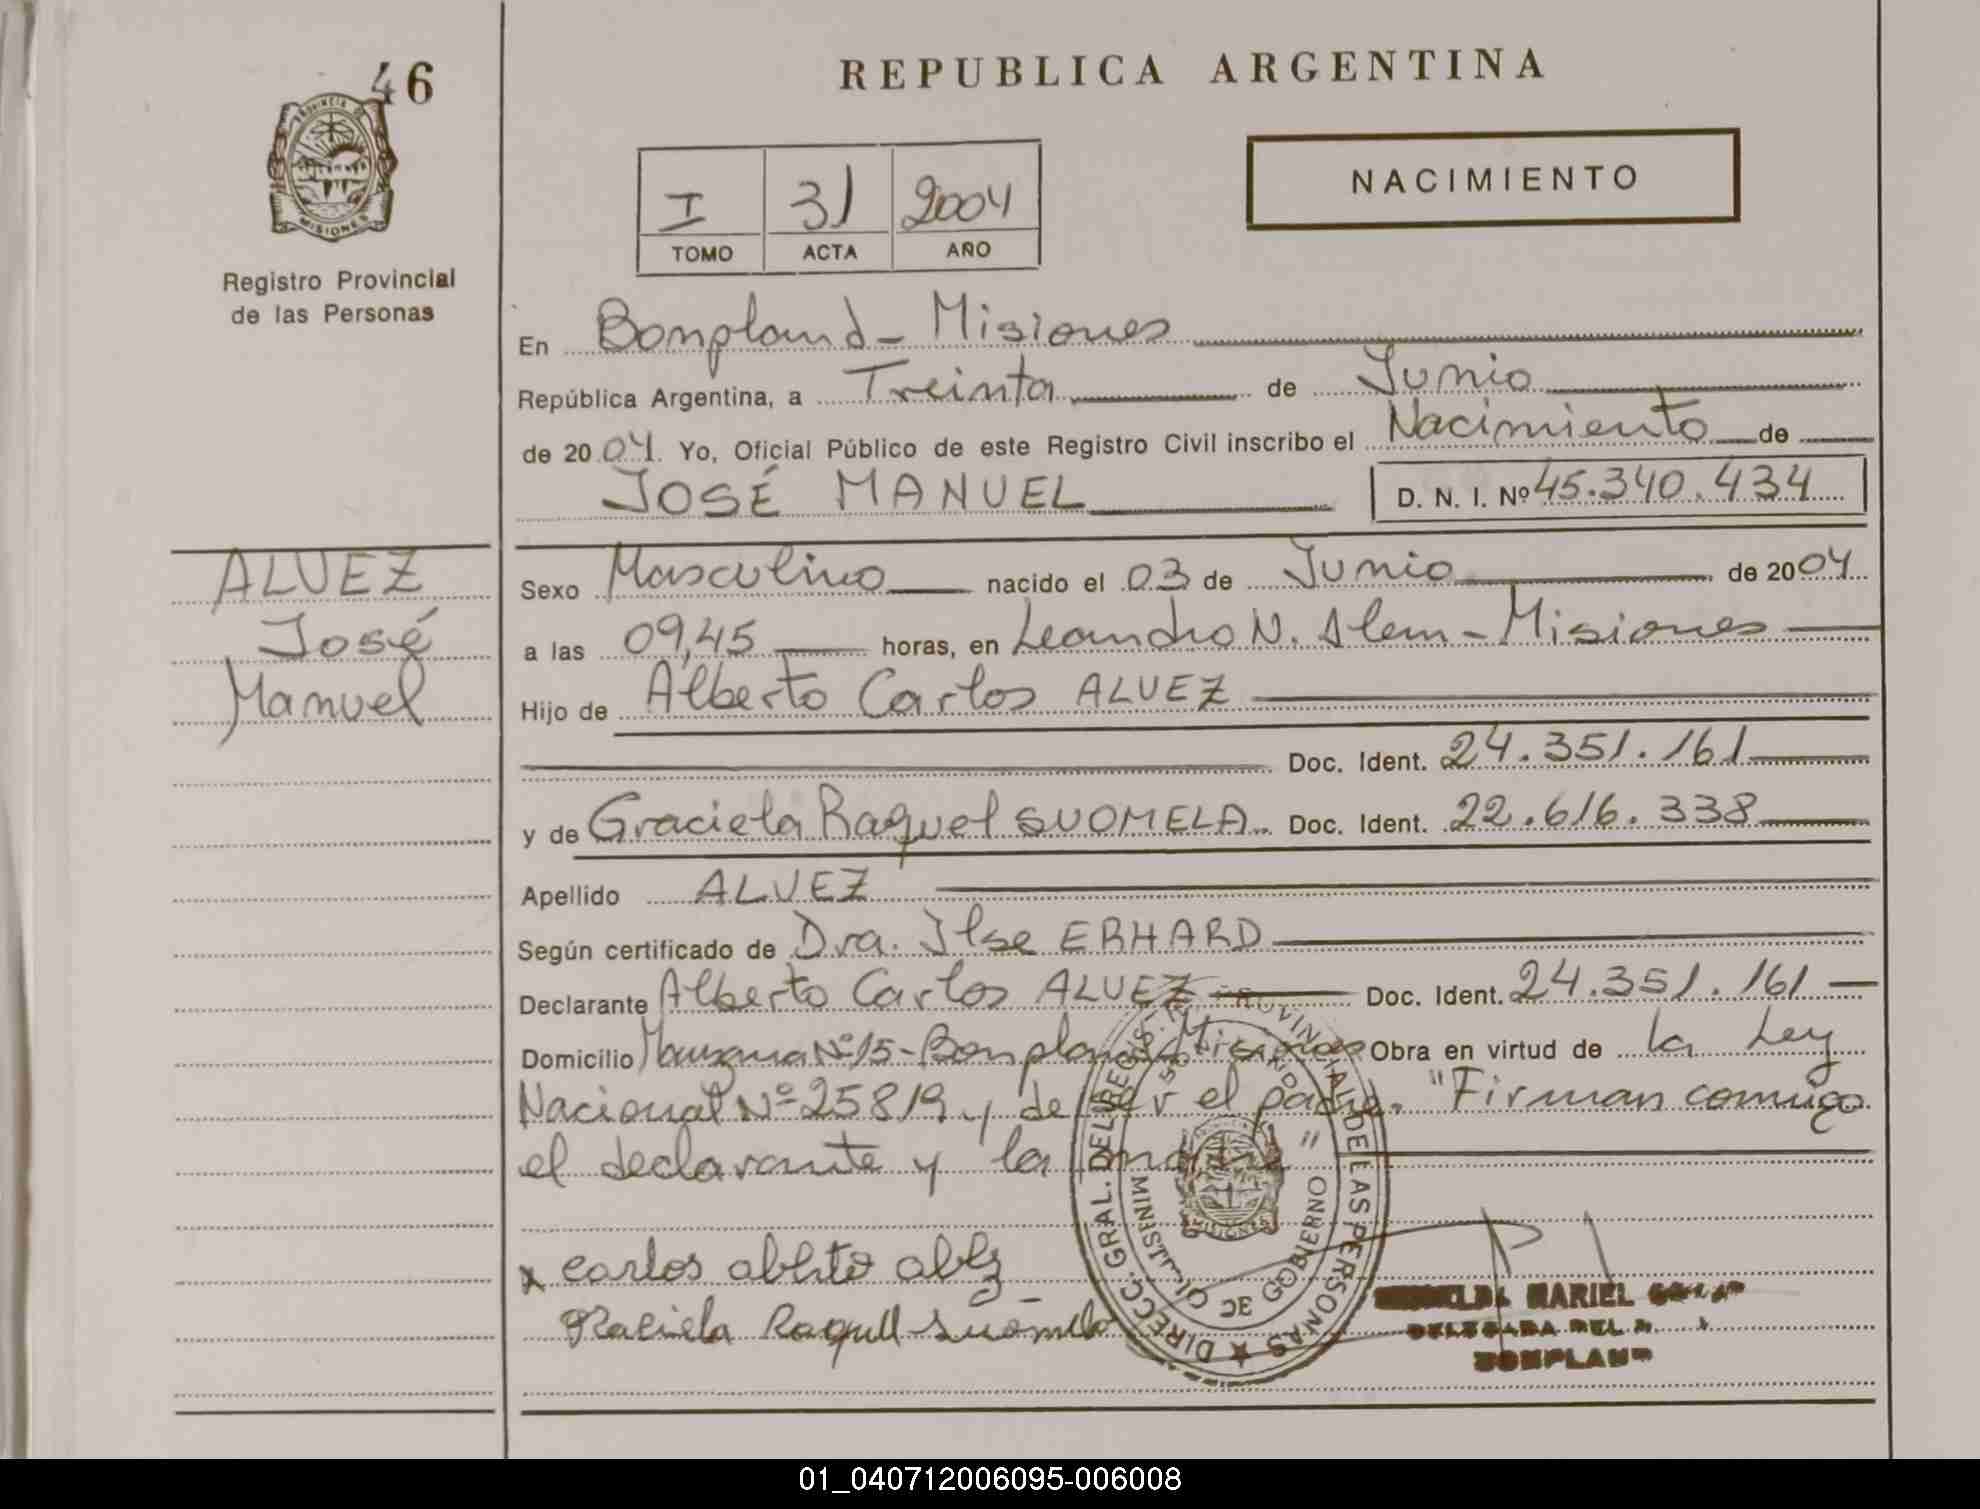 46
REPUBLICA ARGENTINA
PROVINCIA DE
MISIONES
Registro Provincial
de las Personas
I 31 2004
TOMO ACTA AÑO
NACIMIENTO
En Bonpland - Misiones
República Argentina, a Treinta de Junio
de 2004. Yo, Oficial Público de este Registro Civil inscribo el Nacimiento de
JOSÉ MANUEL D. N. I. Nº 45.340.434
ALVEZ
José
Manuel
Sexo Masculino nacido el 03 de Junio de 2004
a las 09,45 horas, en Leandro N. Alem - Misiones
Hijo de Alberto Carlos ALVEZ
Doc. Ident. 24.351.161
y de Graciela Raquel SUOMELA Doc. Ident. 22.616.338
Apellido ALVEZ
Según certificado de Dra. Ilse ERHARD
Declarante Alberto Carlos ALVEZ Doc. Ident. 24.351.161
Domicilio Manzana Nº 15 - Bonpland - Misiones Obra en virtud de la Ley
Nacional Nº 25819 y de ser el padre. "Firman conmigo
el declarante y la madre"
x carlos
Graciela Raquel Suomela
DIRECC. GRAL. DEL REGIST. PROVINCIAL DE LAS PERSONAS
MINIST. DE GOBIERNO
MISIONES
MARIEL
DELEGADA DEL
BONPLAND
01_040712006095-006008